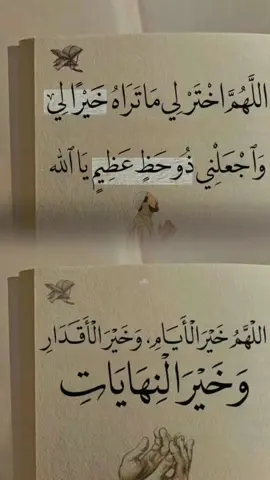 اللَّهُمَّ اخْتَرْ لِي مَا تَرَاهُ خَيْرًا لِي
وَاجْعَلْنِي ذُو حَظٍّ عَظِيمٍ يَا اللَّه
اللَّهُمَّ خَيْرَ الْأَيَّامِ، وَخَيْرَ الْأَقْدَارِ
وَخَيْرَ الْنِهَايَاتِ